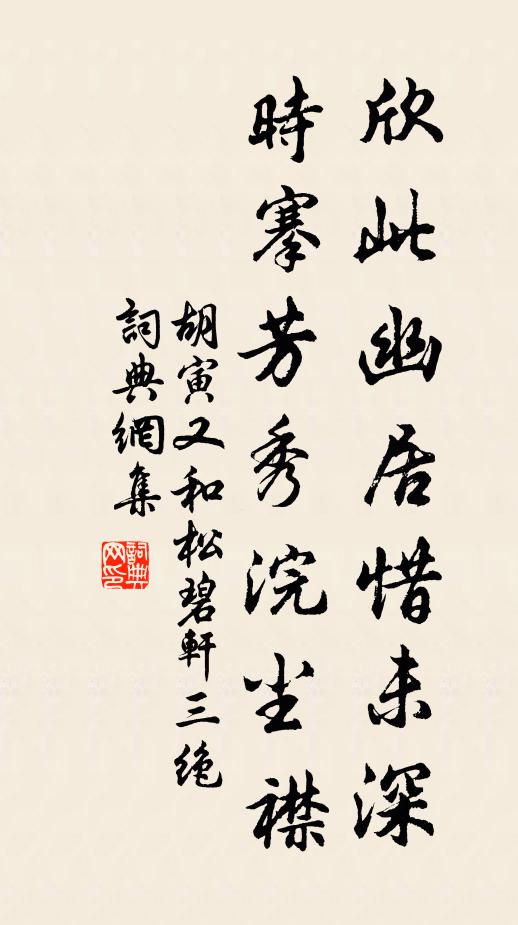 欣此幽居惜未深
時搴芳秀浣尘襟
胡寅又和松碧軒三绝
詞典網集
詞典网印